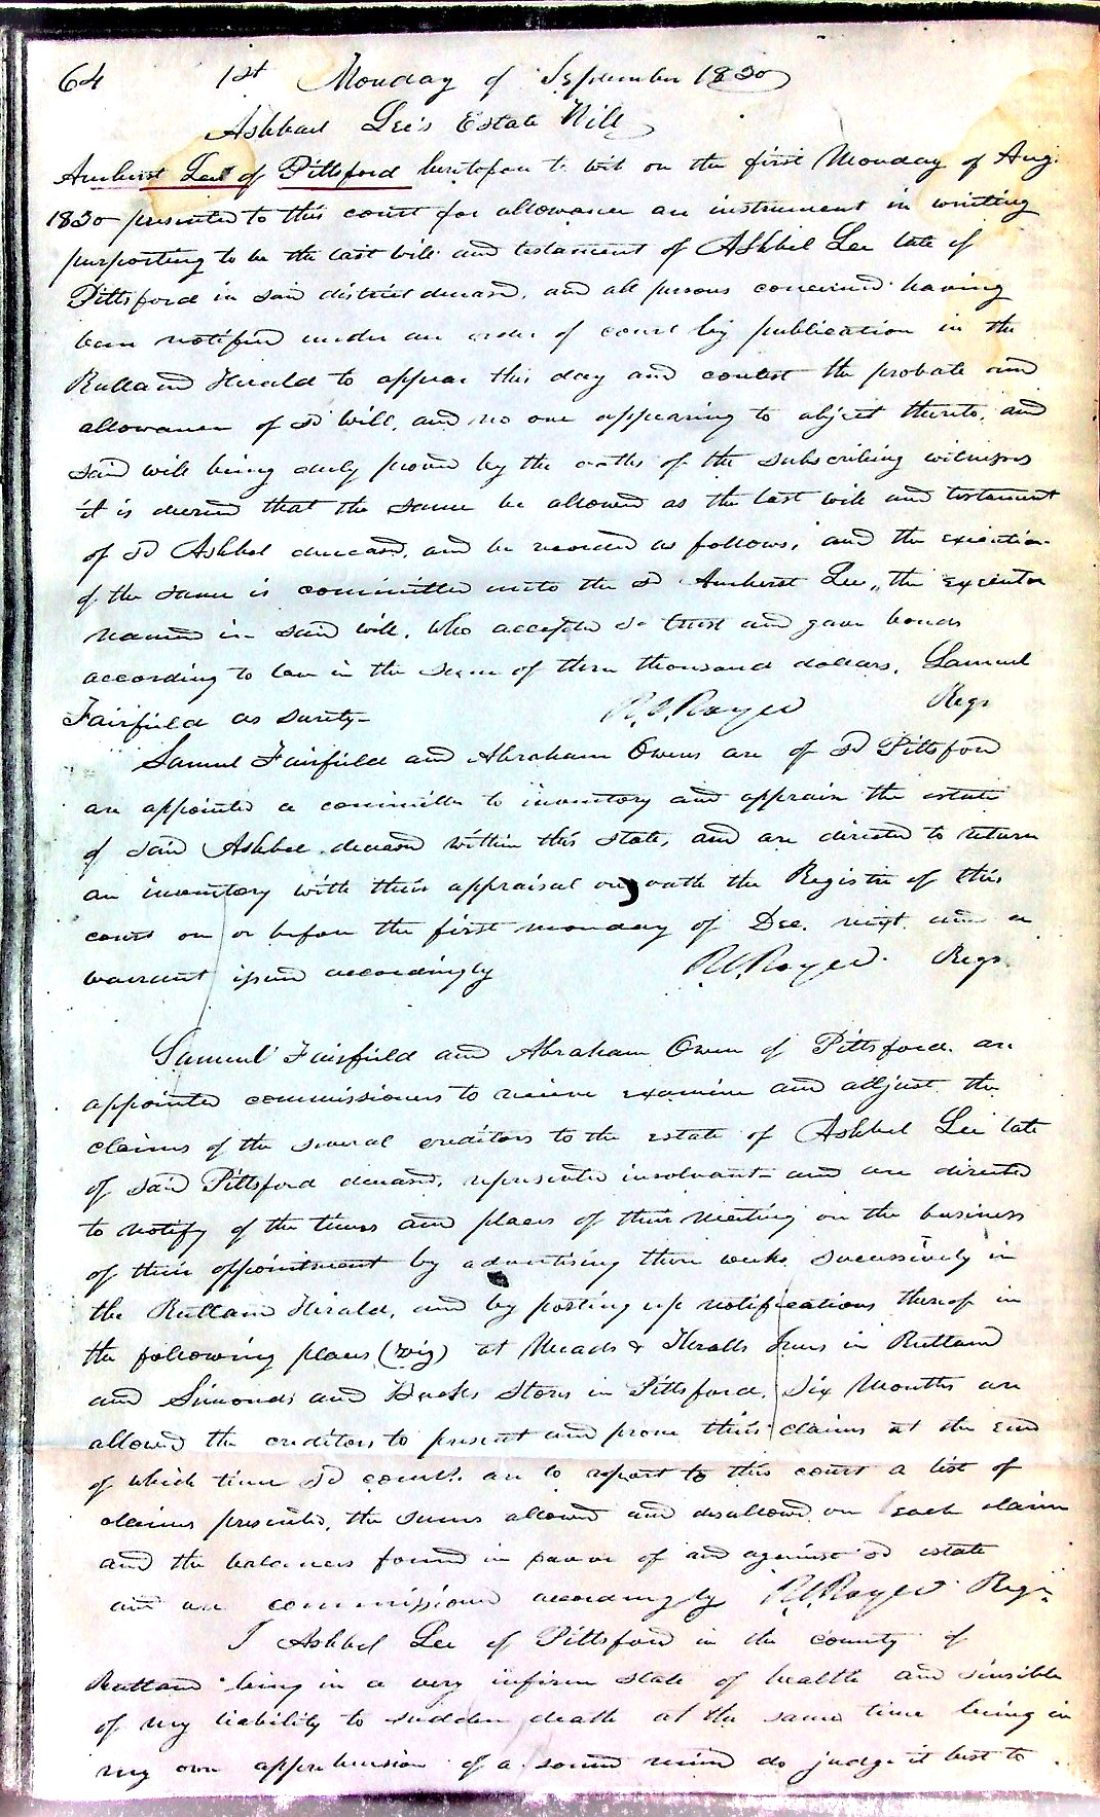 64 1st Monday of September 1830
Ashbael Lee's Estate Will
Amherst Lee of Pittsford heretofore to wit on the first Monday of Aug.
1830 presented to this court for allowance an instrument in writing
purporting to be the last will and testament of Ashbel Lee late of
Pittsford in said district deceased, and all persons concerned having
been notified under an order of court by publication in the
Rutland Herald to appear this day and contest the probate and
allowance of sd will, and no one appearing to object thereto, and
said will being duly proved by the oaths of the subscribing witnesses
it is decreed that the same be allowed as the last will and testament
of sd Ashbel deceased, and be recorded as follows, and the execution
of the same is committed unto the sd Amherst Lee, the executor
named in said will, who accepted sd trust and gave bonds
according to law in the sum of three thousand dollars, Samuel
Fairfield as surety- Regr
Samuel Fairfield and Abraham Owens are of sd Pittsford
are appointed a committee to inventory and appraise the estate
of said Ashbel deceased within this state, and are directed to return
an inventory with their appraisal on oath the Register of this
court on or before the first monday of Dec. next and a
warrant issued accordingly Regr
Samuel Fairfield and Abraham Owen of Pittsford are
appointed commissioners to receive examine and adjust the
claims of the several creditors to the estate of Ashbel Lee late
of said Pittsford deceased, represented insolvant and are directed
to notify of the times and places of their meeting on the business
of their appointment by advertising three weeks sucessively in
the Rutland Herald, and by posting up notifications thereof in
the following places (viz) at Meads & Thralls Inns in Rutland
and Simonds and stores in Pittsford, Six Months are
allowed the creditors to present and prove their claims at the end
of which time sd are to report to this court a list of
claims presented, the sums allowed and disallowed on each claim
and the balances found in favor of and against sd estate
and are commissioned accordingly Regr
I Ashbel Lee of Pittsford in the county of
Rutland being in a very infirm state of health and sensible
of my liability to sudden death at the same time being in
my own apprehension of a sound mind do judge it best to